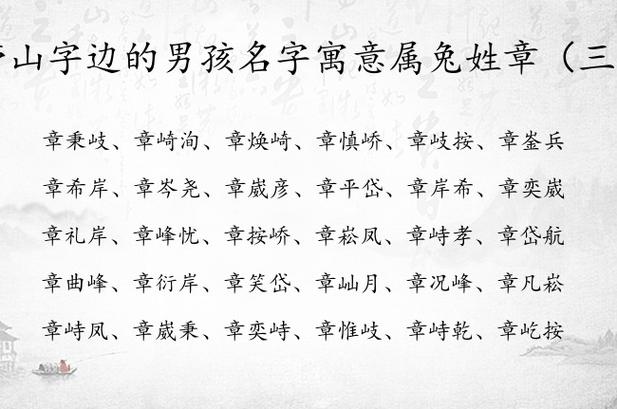 山字边的男孩名字寓意属兔姓章（三
章秉岐、章崎洵、章焕崎、章慎峤、章岐按、章崟兵
章希岸、章岑尧、章崴彦、章平岱、章岸希、章奕崴
章礼岸、章峰忧、章按峤、章崧凤、章峙孝、章岱航
章曲峰、章衍岸、章笑岱、章屾月、章况峰、章凡崧
章峙凤、章崴秉、章奕峙、章惟岐、章峙乾、章屹按